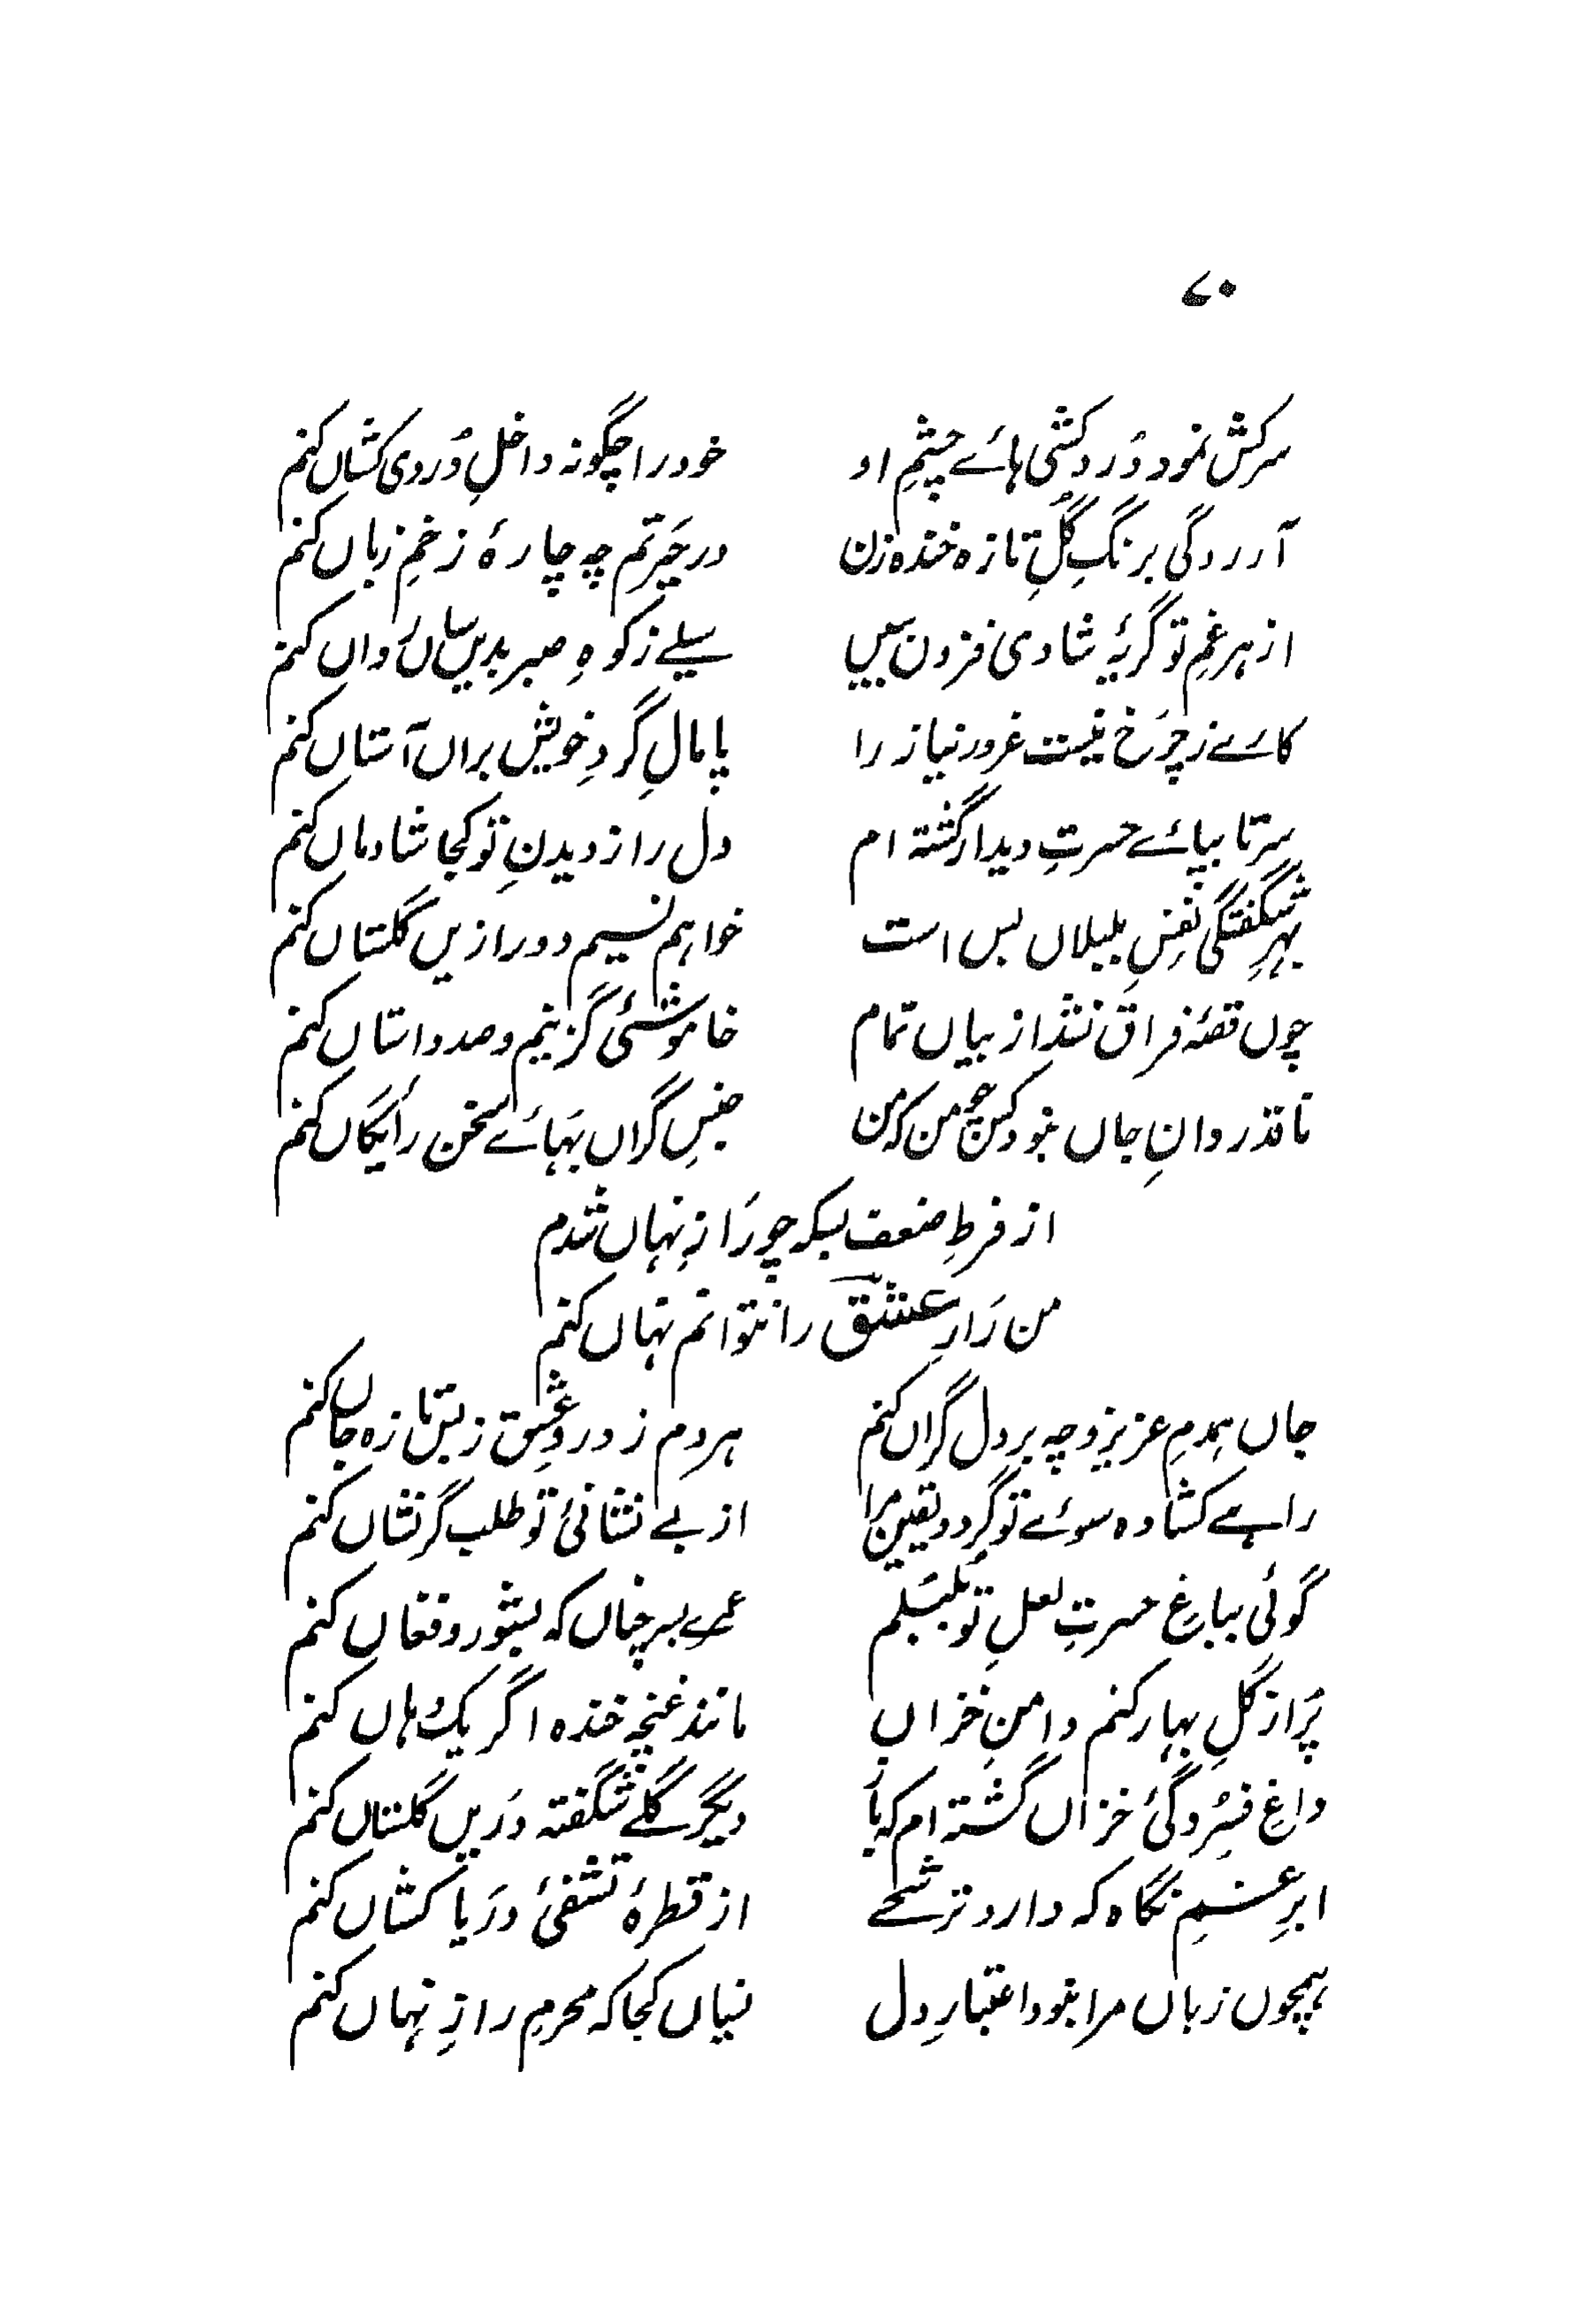 ۷۰
سرکش نمود دُرد کشی ہائے چشمِ او خود را چگونہ داخلِ دُردی کشاں کنم
آزردگی برنگِ گُلِ تازہ خندہ زن در حَیرتم چہ چارۂ زخمِ زباں کنم
از ہر غمِ تو گریۂ شادی فزون ببیں سیلے ز کوہِ صبر بدیں ساں رَواں کنم
کارے ز چَرخ نیست غرور نیاز را پامالِ گردِ خویش براں آستاں کنم
سر تا بپائے حسرتِ دیدار گشتہ ام دل را ز دیدنِ تو کجا شادماں کنم
بہرِ شگفتگی نفسِ بلبلاں بس است خواہم نسیم دور ازیں گلستاں کنم
چوں قصۂ فراق نشد از بیاں تمام خاموشئی گزینم و صد داستاں کنم
نا قدر دانِ جاں نبود کس چو من کہ من جنسِ گراں بَہائے سخن رائگاں کنم
از فرطِ ضعف بسکہ چو رَازِ نہاں شدم
من رَازِ عشق را نتوانم نہاں کنم
جاں ہمدمِ عزیز و چہ بر دل گراں کنم ہر دم ز دردِ عشق ز بس تازہ جاں کنم
راہے کشادہ سوئے تو گردد یقیں مرا از بے نشانئ تو طلب گر نشاں کنم
گوئی بباغِ حسرتِ لعلِ تو بُلبُلم عمرے بسر چناں کہ بشور و فغاں کنم
پُر از گلِ بہار کنم دامنِ خزاں مانند غنچہ خندہ اگر یک دہاں کنم
داغِ فسُردگئ خزاں گشتہ ام کہ باز دیگر گلے شگفتہ دَریں گلستاں کنم
ابرِ غمِ نگاہ کہ دارد ترشحے از قطرۂ تشفئ دَریا کشاں کنم
ہمچوں زباں مرا نبود اعتبارِ دل نسیاں کجا کہ محرمِ رازِ نہاں کنم